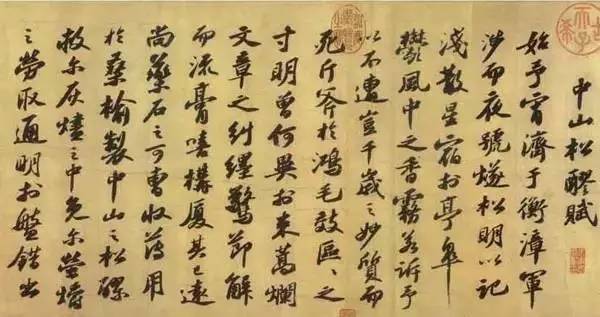 中山松醪賦
始予宵濟于衡漳軍
涉而夜號燧松明以記
淺散星宿於亭皋
鬱風中之香霧若訴予
以不遭豈千歲之妙質而
死斤斧於鴻毛效區〻之
寸明曾何異於束蒿爛
文章之糾纏驚節解
而流膏嘻構厦其已遠
尚藥石之可曹收薄用
於桑榆製中山之松醪
救尔灰燼之中免尔螢爝
之勞取通明於盤錯出